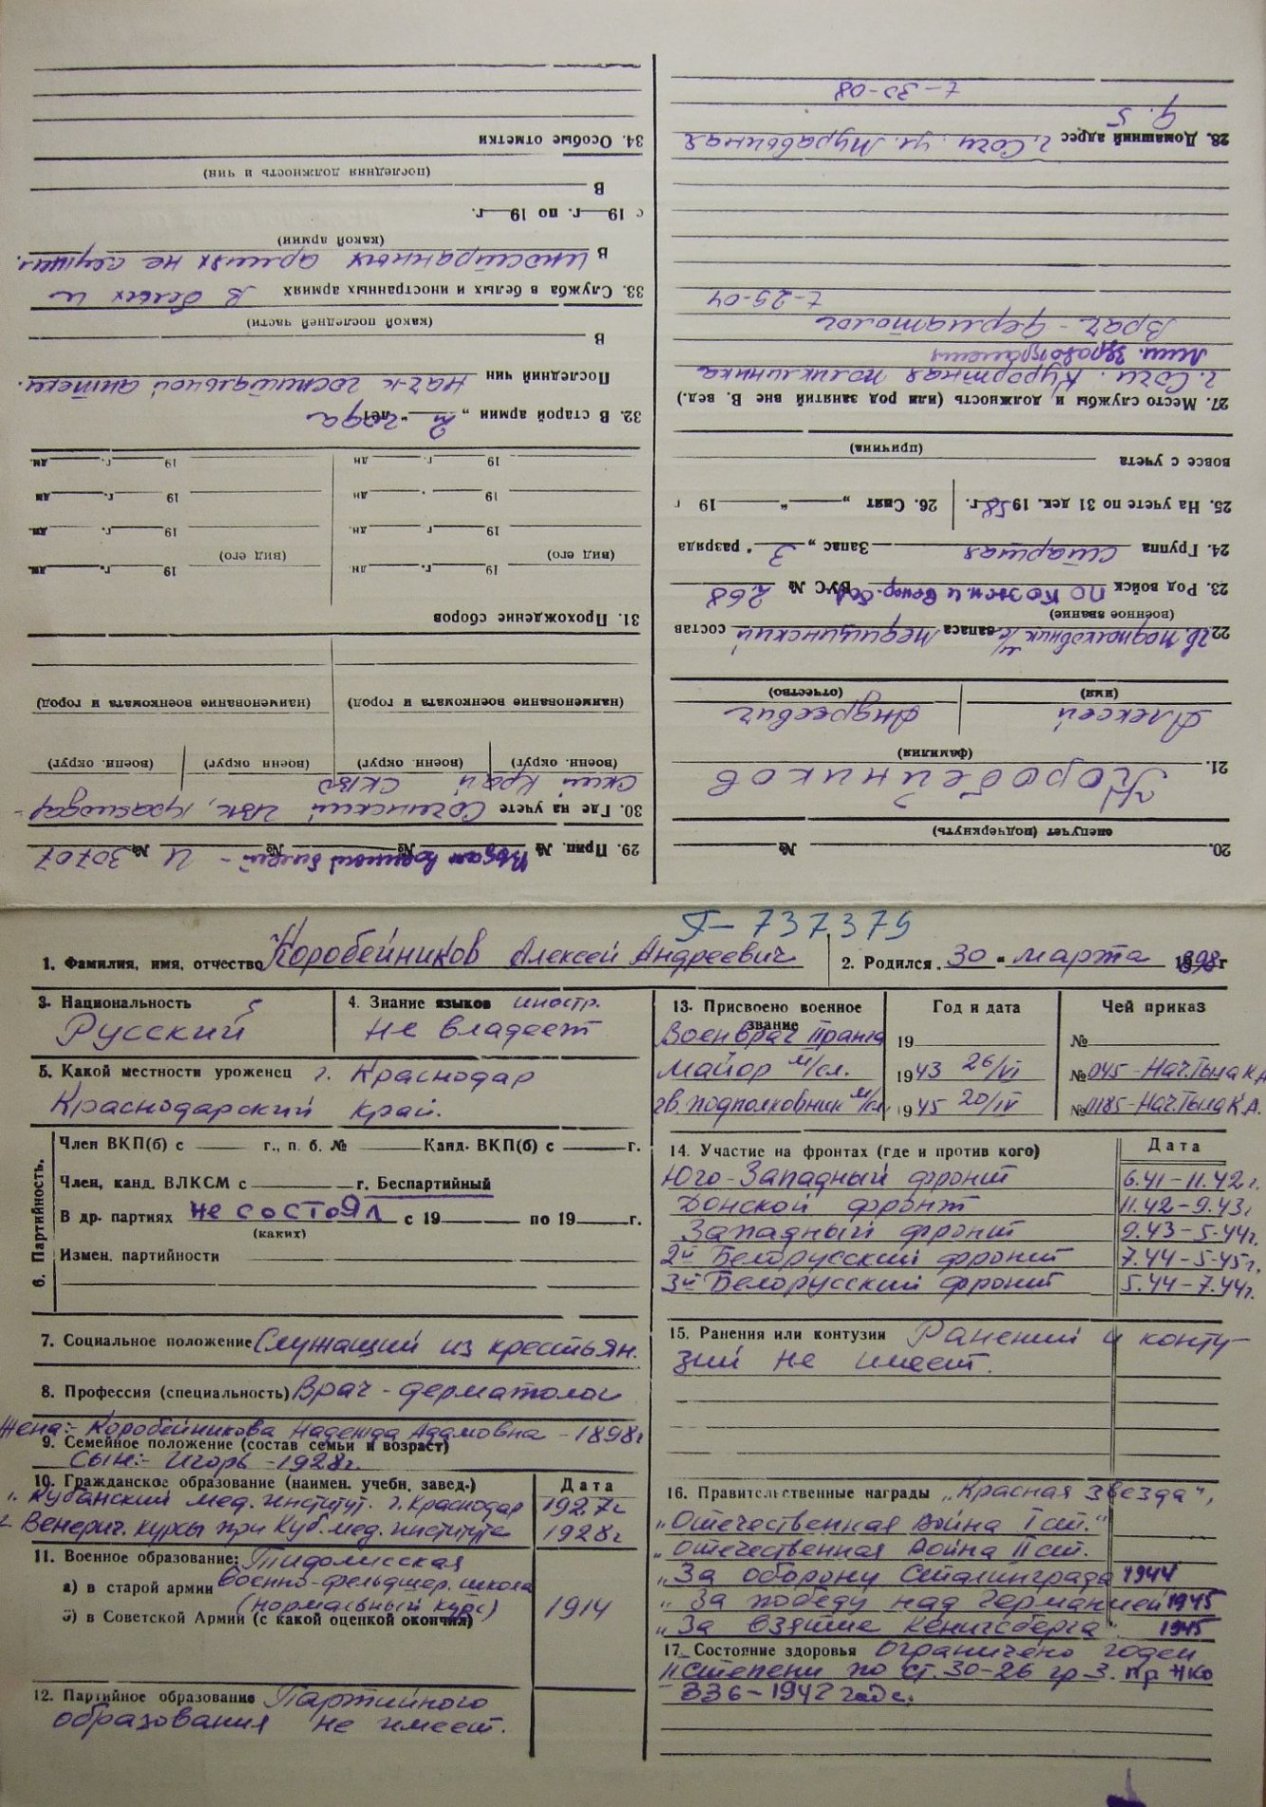 П-737379
1. Фамилия, имя, отчество Коробейников Алексей Андреевич
2. Родился „30" марта 1898 г
3. Национальность 5
Русский
4. Знание языков иностр.
не владеет
5. Какой местности уроженец г. Краснодар
Краснодарский край.
6. Партийность.
Член ВКП(б) с г., п. б. № Канд. ВКП(б) с г.
Член, канд. ВЛКСМ с г. Беспартийный
В др. партиях не состоял с 19 по 19 г.
(каких)
Измен. партийности
7. Социальное положение Служащий из крестьян.
8. Профессия (специальность) Врач-дерматолог
Жена:- Коробейникова Надежда Адамовна - 1898г
9. Семейное положение (состав семьи и возраст)
Сын:- Игорь - 1928г.
10. Гражданское образование (наимен. учебн. завед.)
Дата
1. Кубанский мед. институт. г. Краснодар 1927г
2. Венерич. курсы при Куб. мед. институте 1928г
11. Военное образование: Тифлисская
а) в старой армии военно-фельдшер. школа
(нормальный курс) 1914
б) в Советской Армии (с какой оценкой окончил)
12. Партийное образование Партийного
образования не имеет.
13. Присвоено военное звание
Год и дата
Чей приказ
Военврач II ранга 19 №
Майор м/сл. 1943 26/VI №045-Нач.Тыла К.А
гв. подполковник м/сл. 1945 20/IV №0185-Нач.Тыла К.А.
14. Участие на фронтах (где и против кого)
Дата
Юго-Западный фронт 6.41-11.42г.
Донской фронт 11.42-9.43г
Западный фронт 9.43-5.44г.
2й Белорусский фронт 7.44-5.45г.
3й Белорусский фронт 5.44-7.44г.
15. Ранения или контузии Ранений и конту-
зий не имеет.
16. Правительственные награды „Красная звезда",
„Отечественная война I ст."
„Отечественная война II ст.
„За оборону Сталинграда 1944
„За победу над Германией 1945
„За взятие Кенигсберга" 1945
17. Состояние здоровья ограничено годен
II степени по ст. 30-26 гр 3. пр НКО
336-1942 года.
20. спецучет (подчеркнуть) №
21. Коробейников
(фамилия)
Алексей Андреевич
(имя) (отчество)
22. гв. подполковник м/с запаса медицинский состав
(военное звание)
23. Род войск по кожн. и венер. бол ВУС № 268
24. Группа старшая Запас „3" разряда
25. На учете по 31 дек. 1958 г. 26. Снят „ " 19 г
вовсе с учета
(причина)
27. Место службы и должность (или род занятий вне В. вед.)
г. Сочи. Курортная поликлиника
Мин. Здравохранения
Врач-дерматолог
т-25-04
28. Домашний адрес г. Сочи. ул. Муравьиная
д. 5
т-30-08
29. Прип. № Выдан военный билет - И № 30707
30. Где на учете Сочинский ГВК, Краснодар-
ский край СКВО
(воен. округ) (воен. округ) (воен округ) (воен. округ)
(наименование военкомата и город) (наименование военкомата и город)
31. Прохождение сборов
19 г. дн 19 г. дн.
(вид его) (вид его)
19 г дн. 19 г. дн.
19 . дн 19 г. дн
19 г. дн 19 г. дн.
32. В старой армии „2" лет года
Последний чин нач-к госпитальной аптеки.
В
(какой последней части)
33. Служба в белых и иностранных армиях В белых и
В иностранных армиях не служил.
(какой армии)
с 19 г. по 19 г.
В
(последняя должность и чин)
34. Особые отметки